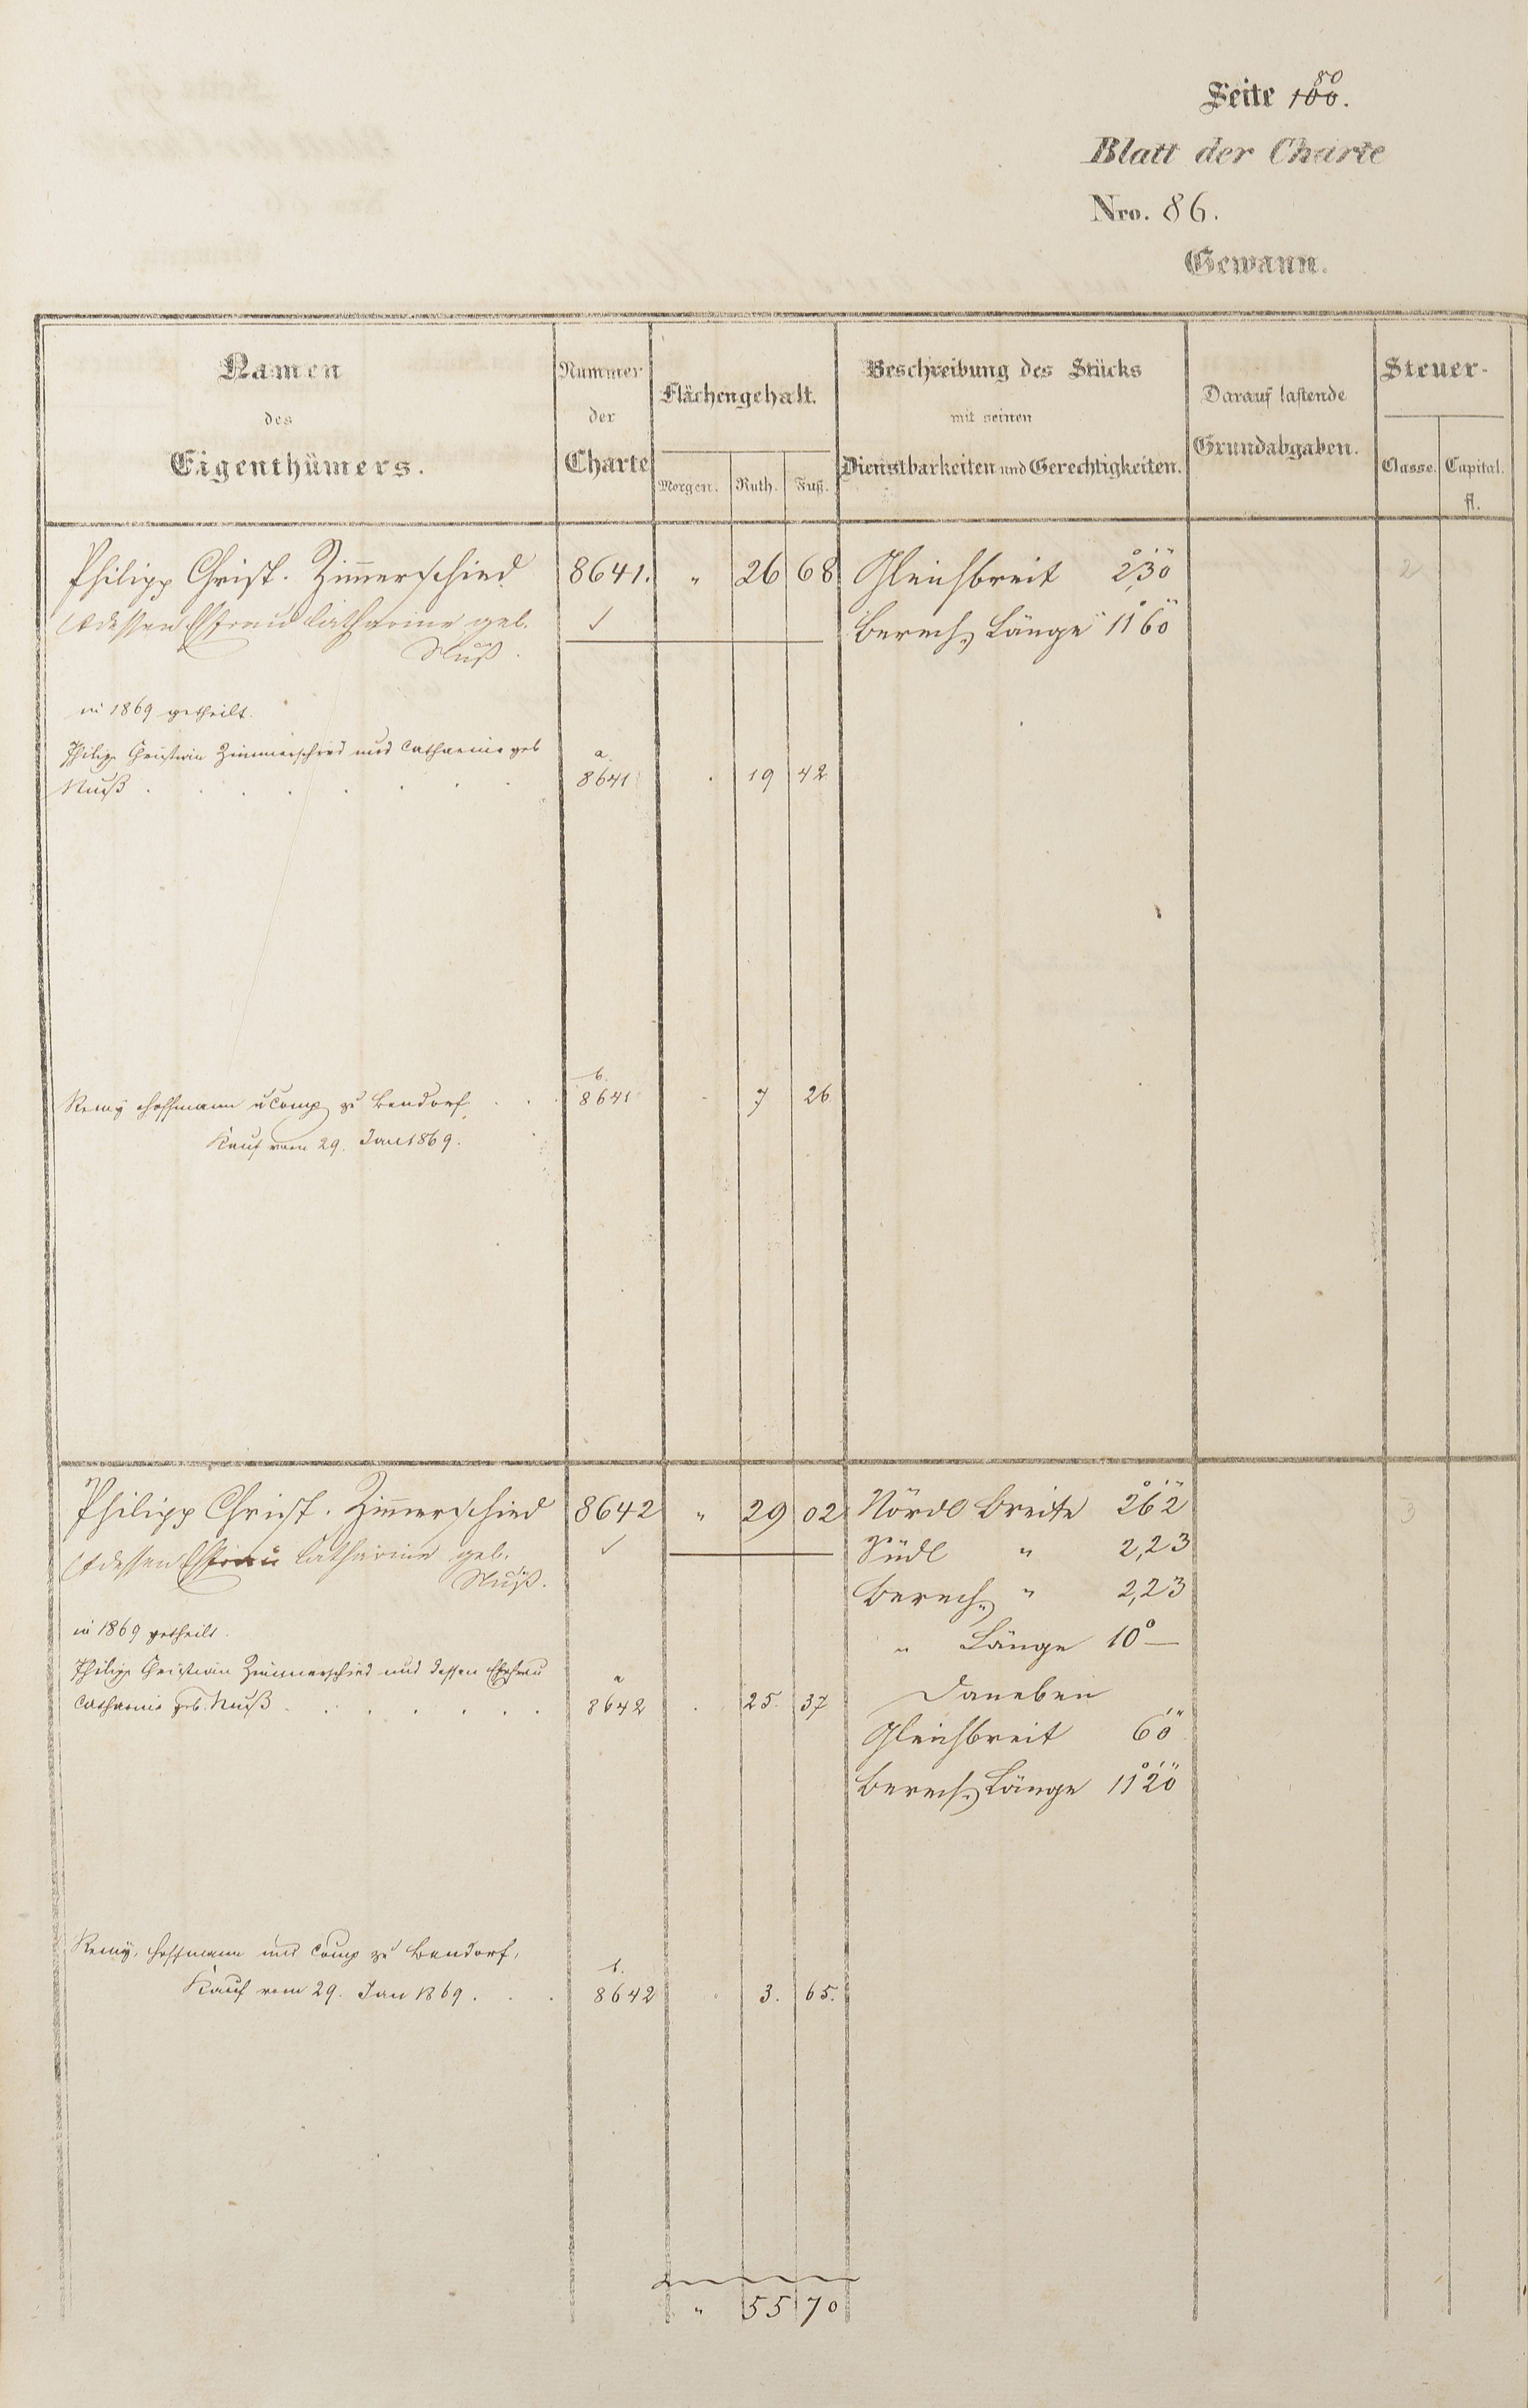 80
Seite 100.
Blatt der Charte
Nro. 86.
Gewann.
Namen des Eigenthümers.
Nummer der Charte
Flächengehalt.
Morgen. Ruth. Fuß.
Beschreibung des Stücks mit seinen Dienstbarkeiten und Gerechtigkeiten.
Darauf lastende Grundabgaben.
Steuer-
Classe. Capital. fl.
Philipp Christ. Zimerschied 8641. " 26 68 Gleichbreit 2,30 2
dessen Ehefrau Catharine geb. ✓ berech. Länge 11°60
Nuß.
in 1869 getheilt.
Philipp Christian Zimmerschied und Catharine geb
Nuß . . . . . . . a. 8641 . 19 42
Remy Hoffmann u Comp zu Bendorf . . . b. 8641 - 7 26
Kauf vom 29. Jan 1869.
Philipp Christ. Zimerschied 8642 " 29 02 Nördl breite 2°6'2" 3
dessen Ehefrau Catharine geb. ✓ Südl " 2,23
Nuß. berech. " 2,23
in 1869 getheilt. " Länge 10° —
Philipp Christian Zimmerschied und dessen Ehefrau
Catharine geb. Nuß . . . . . . a 8642 . 25. 37 Daneben
Gleichbreit 6'0"
berech. Länge 11°2'0"
Remy, Hoffmann und Comp zu Bendorf,
Kauf vom 29. Jan 1869 . . . b. 8642 . 3. 65.
" 55 70